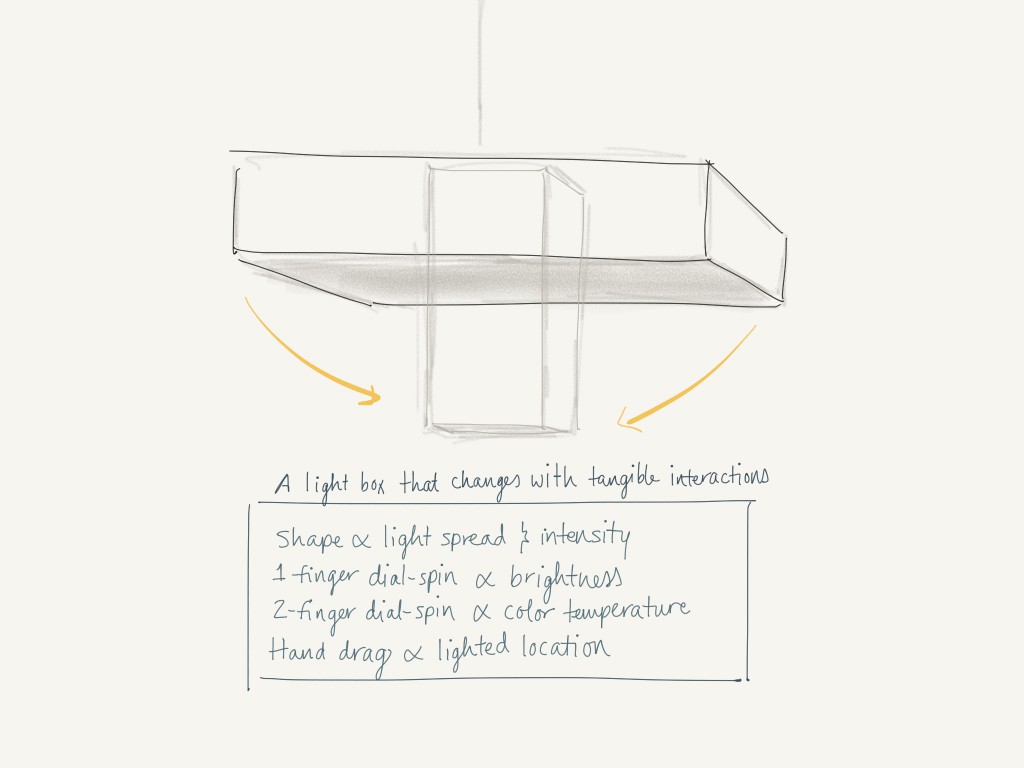 A light box that changes with tangible interactions
Shape ∝ light spread & intensity
1-finger dial-spin ∝ brightness
2-finger dial-spin ∝ color temperature
Hand drag ∝ lighted location